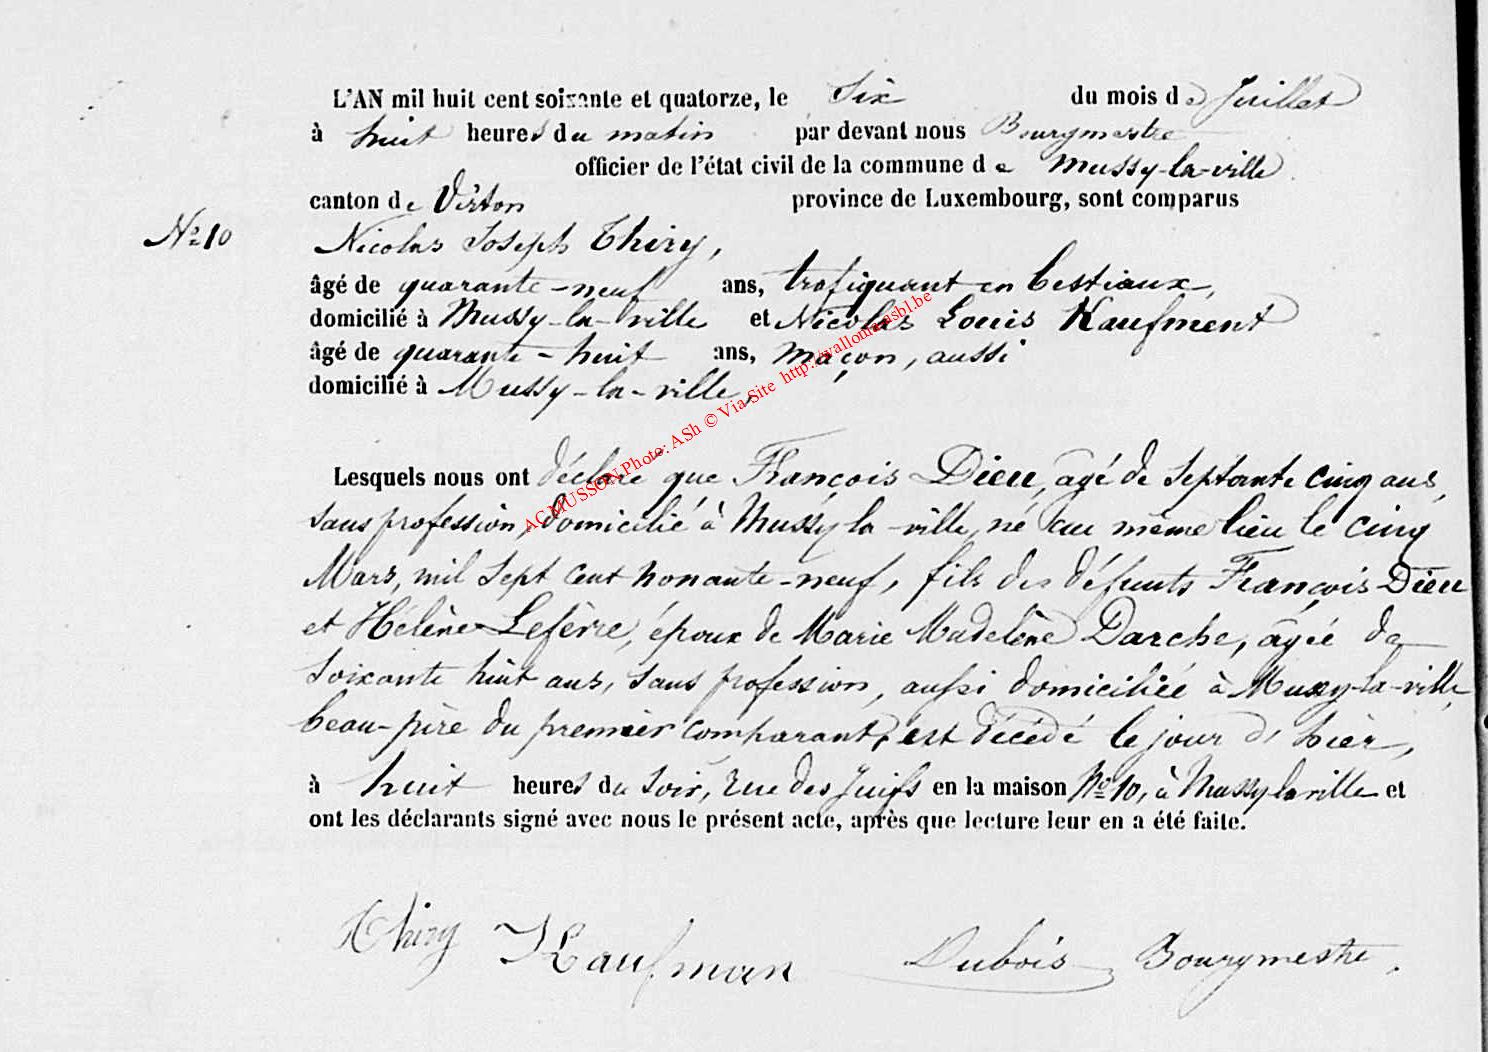 L'AN mil huit cent soixante et quatorze, le Six du mois de Juillet
à huit heures du matin par devant nous Bourgmestre
officier de l'état civil de la commune de Mussy-la-ville
canton de Virton province de Luxembourg, sont comparus
No 10 Nicolas Joseph Thiry,
âgé de quarante-neuf ans, trafiquant en bestiaux,
domicilié à Mussy-la-ville et Nicolas Louis Kaufment
âgé de quarante-huit ans, maçon, aussi
domicilié à Mussy-la-ville,
Lesquels nous ont déclaré que François Dieu, agé de septante cinq ans,
sans profession, domicilié à Mussy la-ville, né au même lieu le cinq
Mars, mil sept cent nonante-neuf, fils des défunts François Dieu
et Hélène Lefèvre, époux de Marie Madelène Darche, âgée de
soixante huit ans, sans profession, aussi domiciliée à Mussy-la-ville,
beau-père du premier comparant, est décédé le jour d'hier,
à huit heures du soir, rue des Juifs en la maison No 10, à Mussy la ville et
ont les déclarants signé avec nous le présent acte, après que lecture leur en a été faite.
Thiry Kaufman Dubois Bourgmestre.
AC MUSSON Photo: ASh © Via-Site http://wallonia-asbl.be